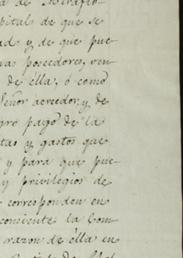 pital de que se
ad y, de que pue
vas poseedores, ven
de ella, ó como
Señor acreedor, y de
gro pago de la
tas y gastos que
y para que pue
y privilegios de
corresponden en
consiente la Com
razon de élla en